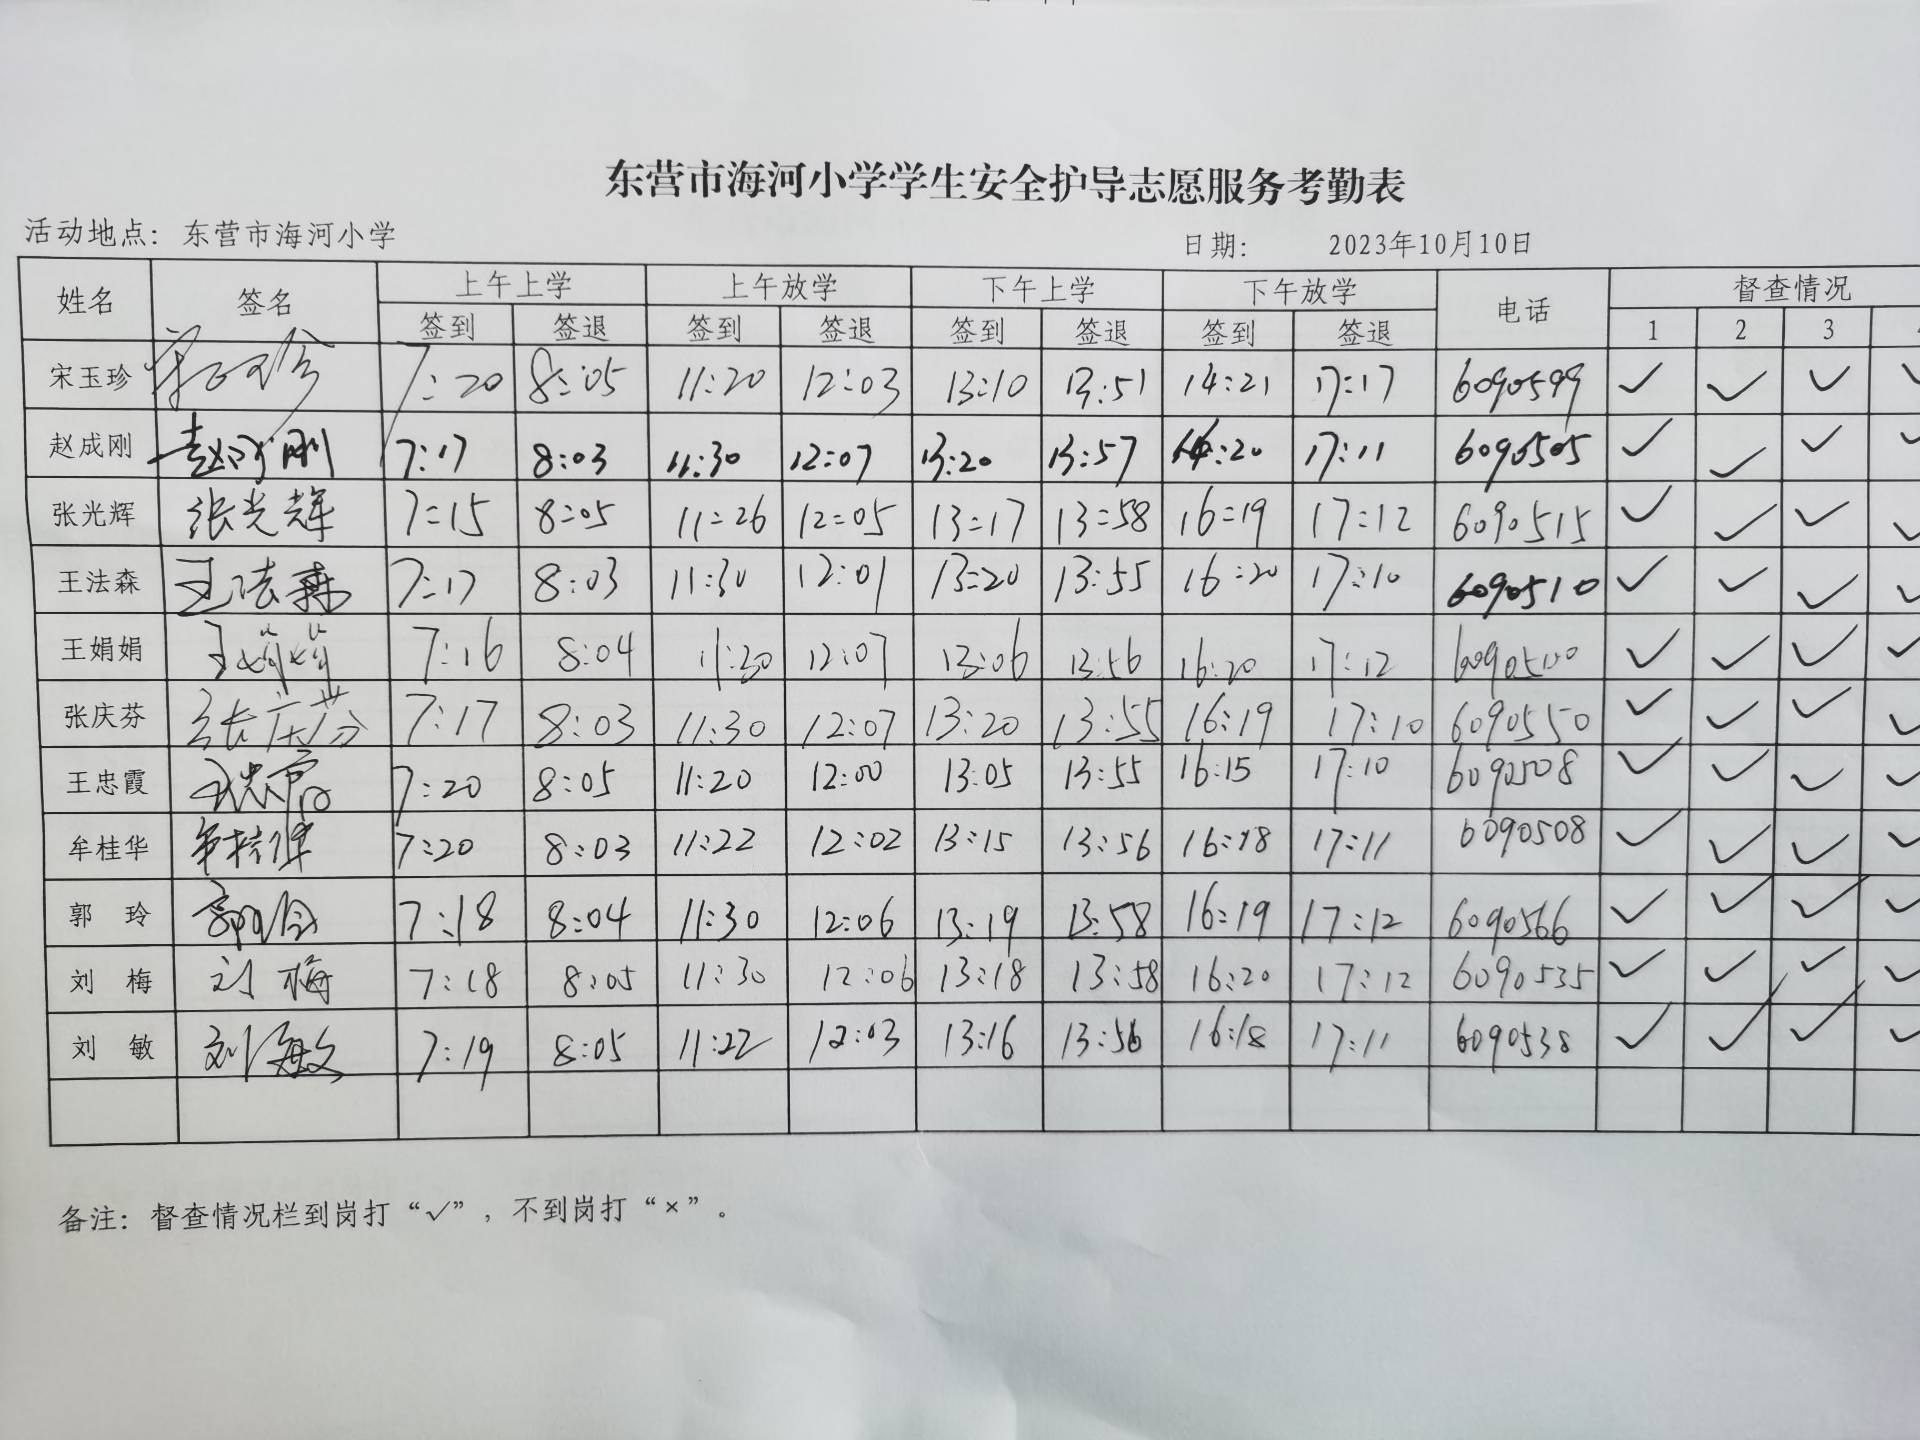 东营市海河小学学生安全护导志愿服务考勤表
活动地点: 东营市海河小学 日期: 2023年10月10日
姓名 签名 上午上学 上午放学 下午上学 下午放学 电话 督查情况
签到 签退 签到 签退 签到 签退 签到 签退 1 2 3
宋玉珍 宋玉珍 7:20 8:05 11:20 12:03 13:10 13:51 14:21 17:17 6090599 ✓ ✓ ✓ ✓
赵成刚 赵成刚 7:17 8:03 11:30 12:07 13:20 13:57 16:20 17:11 6090505 ✓ ✓ ✓ ✓
张光辉 张光辉 7:15 8:05 11:26 12:05 13:17 13:58 16:19 17:12 6090515 ✓ ✓ ✓ ✓
王法森 王法森 7:17 8:03 11:30 12:01 13:20 13:55 16:20 17:10 6090510 ✓ ✓ ✓ ✓
王娟娟 王娟娟 7:16 8:04 11:30 12:07 13:06 13:56 16:20 17:12 ✓ ✓ ✓ ✓
张庆芬 张庆芬 7:17 8:03 11:30 12:07 13:20 13:55 16:19 17:10 6090550 ✓ ✓ ✓ ✓
王忠霞 王忠霞 7:20 8:05 11:20 12:00 13:05 13:55 16:15 17:10 6090508 ✓ ✓ ✓ ✓
牟桂华 牟桂华 7:20 8:03 11:22 12:02 13:15 13:56 16:18 17:11 6090508 ✓ ✓ ✓ ✓
郭 玲 郭玲 7:18 8:04 11:30 12:06 13:19 13:58 16:19 17:12 6090566 ✓ ✓ ✓ ✓
刘 梅 刘梅 7:18 8:05 11:30 12:06 13:18 13:58 16:20 17:12 6090535 ✓ ✓ ✓ ✓
刘 敏 刘敏 7:19 8:05 11:22 12:03 13:16 13:56 16:18 17:11 6090538 ✓ ✓ ✓ ✓
备注: 督查情况栏到岗打“✓”, 不到岗打“×”。